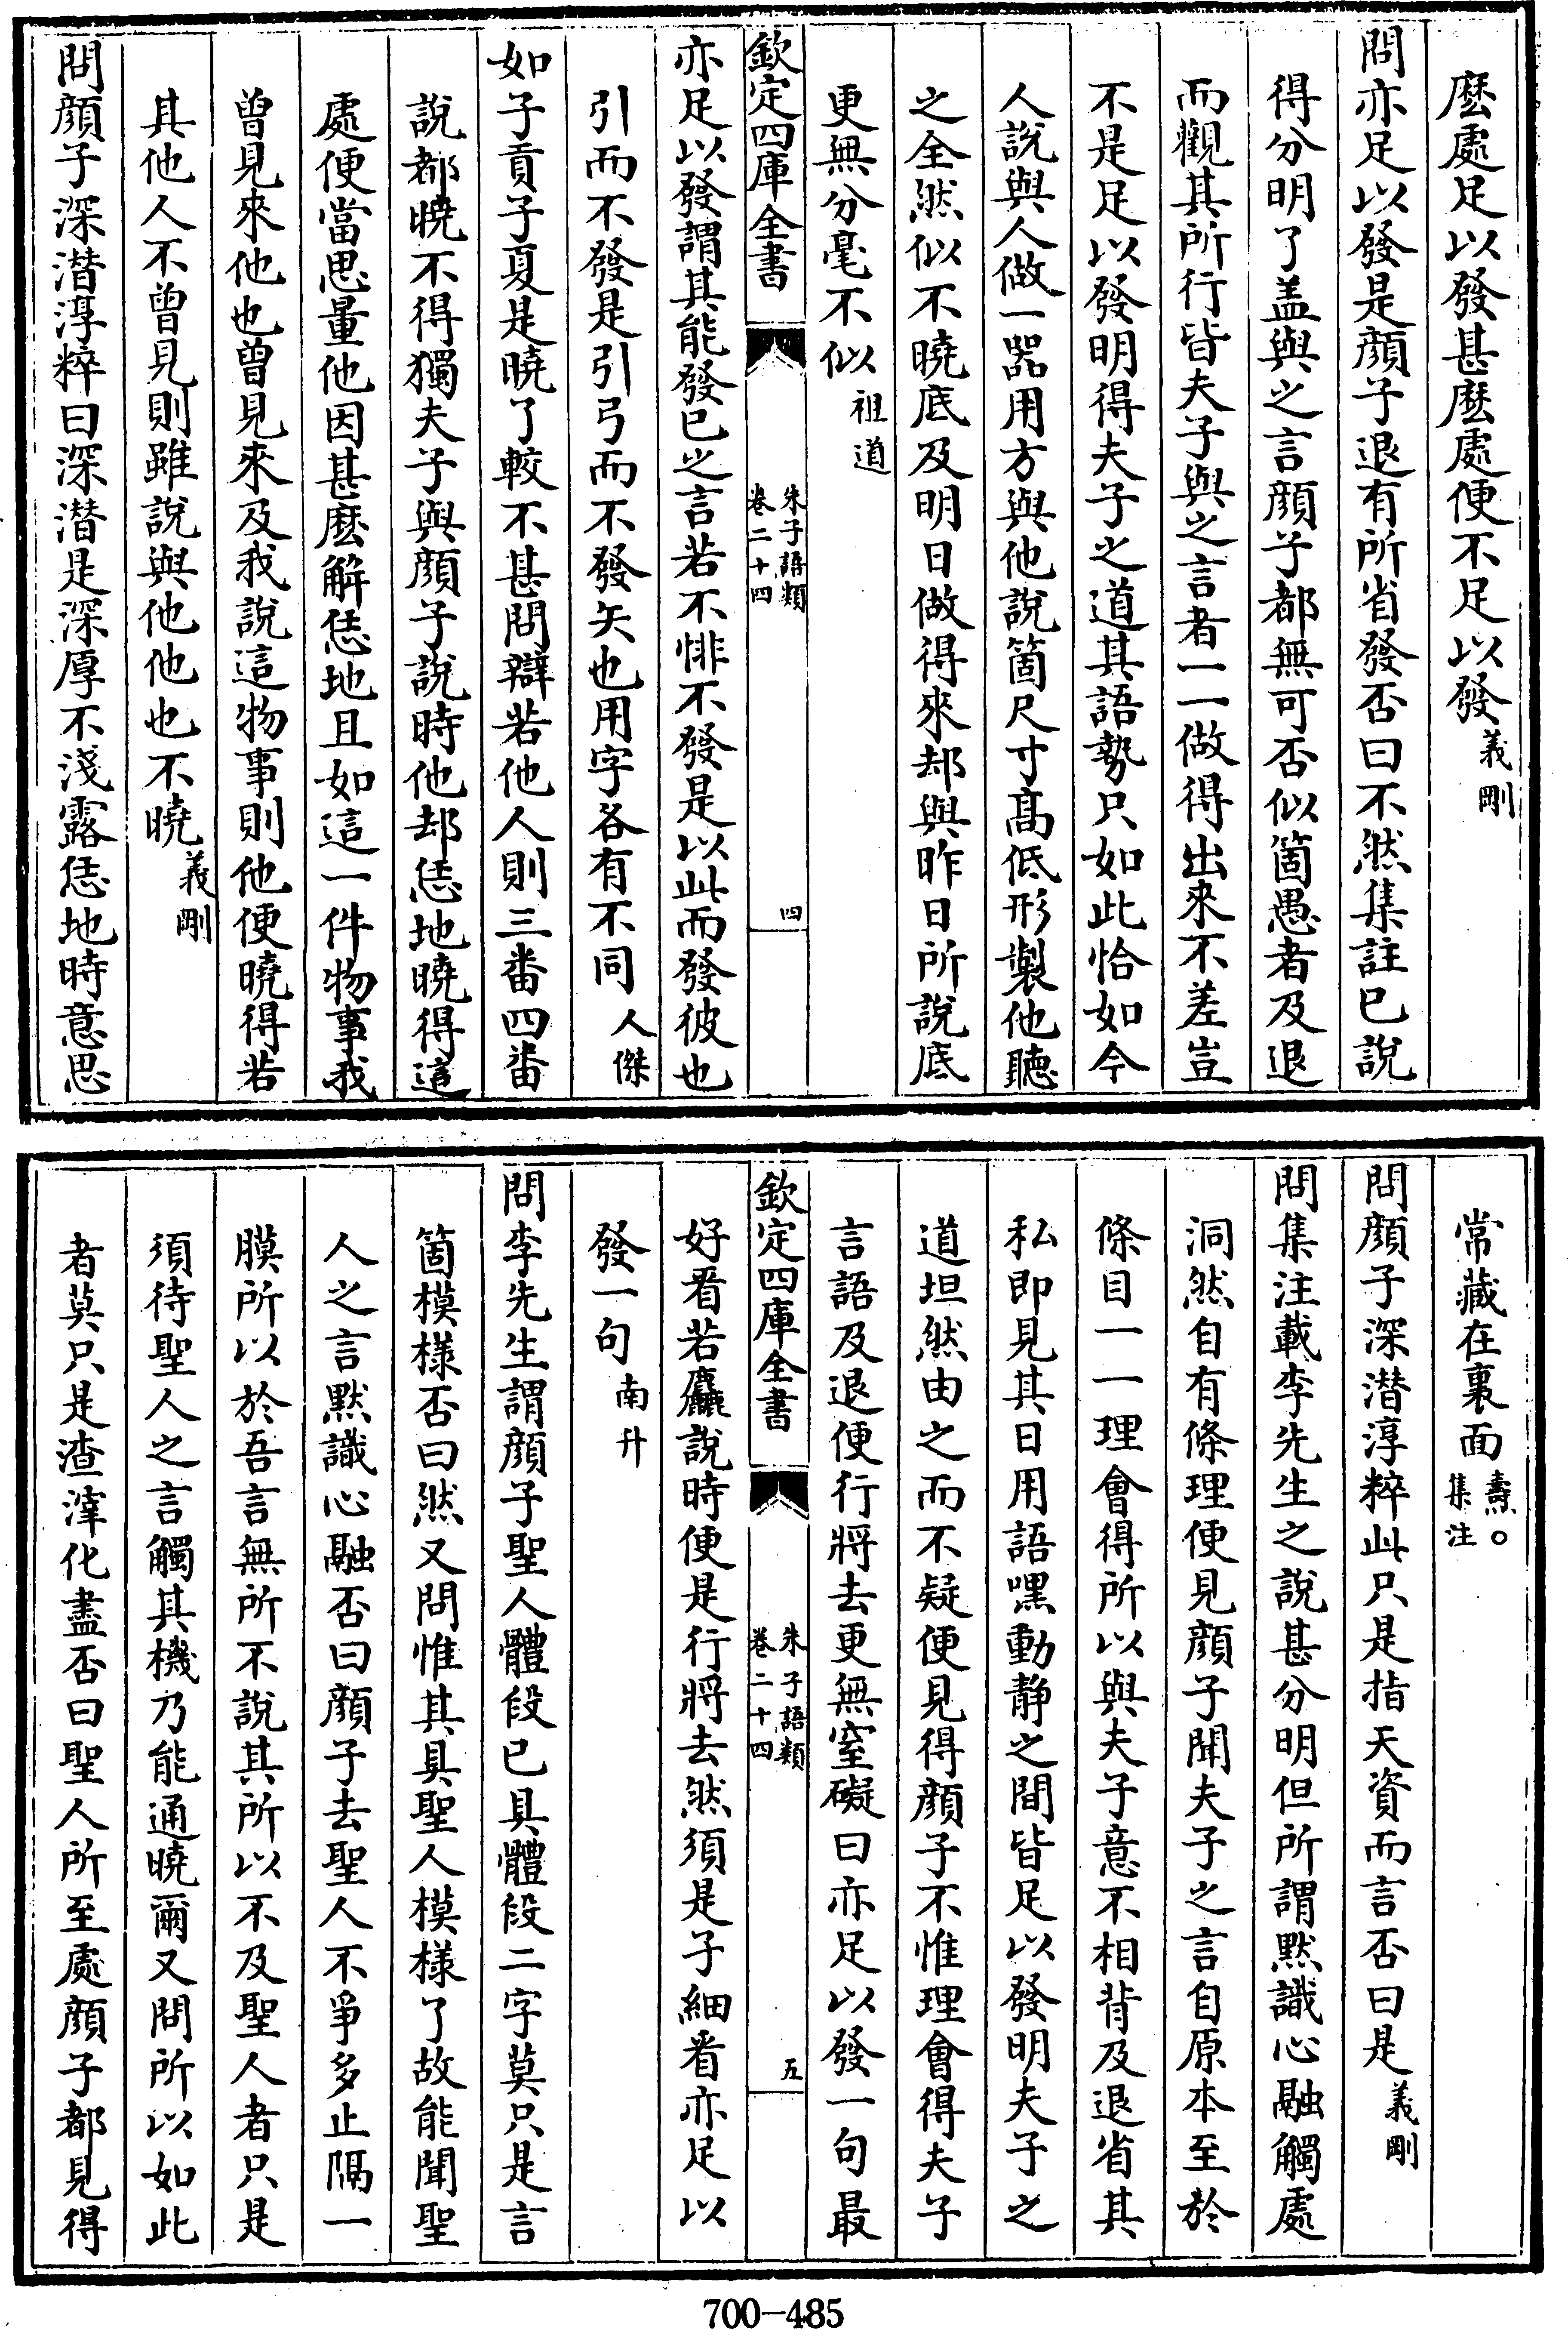 麽處足以發甚麽處便不足以發義剛
問亦足以發是顔子退有所省發否曰不然集註已說
得分明了盖與之言顔子都無可否似箇愚者及退
而觀其所行皆夫子與之言者一一做得出來不差豈
不是足以發明得夫子之道其語勢只如此恰如今
人說與人做一器用方與他說箇尺寸髙低形製他聽
之全然似不曉底及明日做得來却與昨日所說底
更無分毫不似祖道
欽定四庫全書
朱子語類
卷二十四
四
亦足以發謂其能發已之言若不悱不發是以此而發彼也
引而不發是引弓而不發矢也用字各有不同人傑
如子貢子夏是曉了較不甚問辯若他人則三番四番
說都曉不得獨夫子與顔子說時他却恁地曉得這
處便當思量他因甚麽解恁地且如這一件物事我
曾見來他也曾見來及我說這物事則他便曉得若
其他人不曾見則雖說與他他也不曉義剛
問顔子深潜淳粹曰深潜是深厚不淺露恁地時意思
常藏在裏面燾○
集注
問顔子深潜淳粹此只是指天資而言否曰是義剛
問集注載李先生之說甚分明但所謂黙識心融觸處
洞然自有條理便見顔子聞夫子之言自原本至於
條目一一理會得所以與夫子意不相背及退省其
私即見其日用語嘿動静之間皆足以發明夫子之
道坦然由之而不疑便見得顔子不惟理會得夫子
言語及退便行將去更無窒礙曰亦足以發一句最
欽定四庫全書
朱子語類
卷二十四
五
好看若麤說時便是行將去然須是子細看亦足以
發一句南升
問李先生謂顔子聖人體段已具體段二字莫只是言
箇模様否曰然又問惟其具聖人模様了故能聞聖
人之言黙識心融否曰顔子去聖人不爭多止隔一
膜所以於吾言無所不說其所以不及聖人者只是
須待聖人之言觸其機乃能通曉爾又問所以如此
者莫只是渣滓化盡否曰聖人所至處顔子都見得
700-485